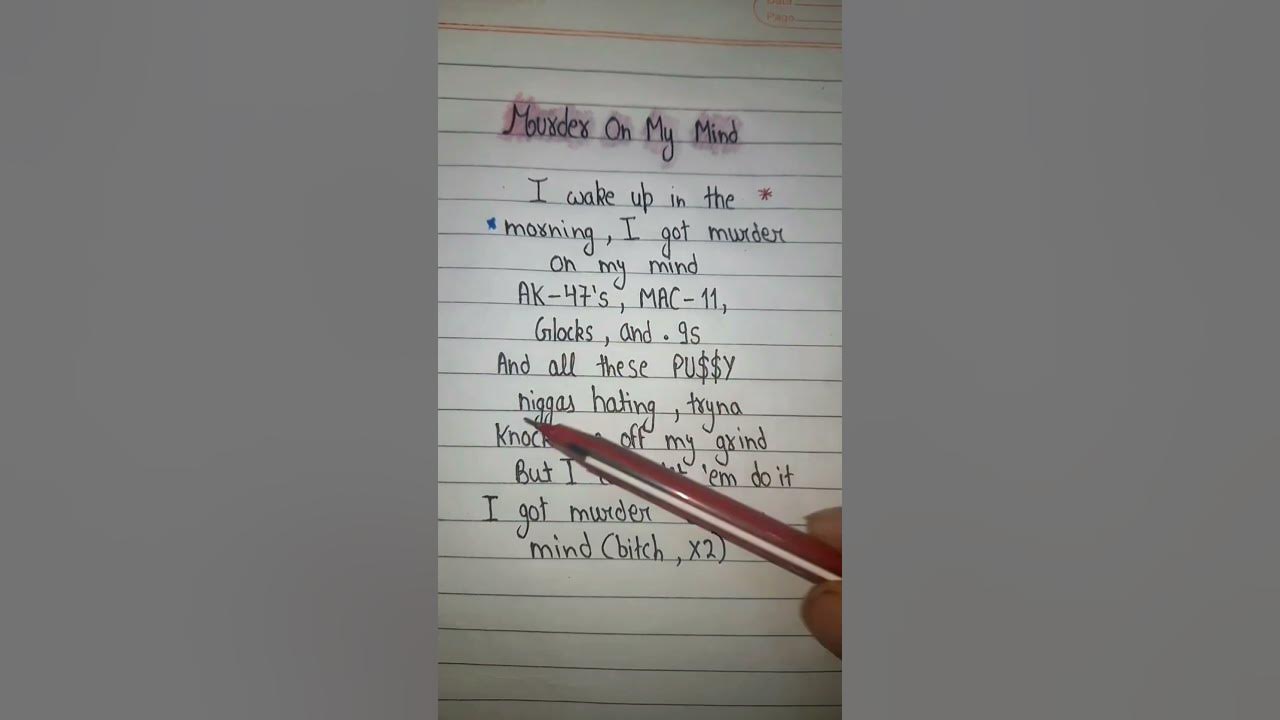 Page
Murder On My Mind
I wake up in the *
* morning, I got murder
on my mind
AK-47's, MAC-11,
Glocks, and . 9s
And all these PU$$Y
niggas hating, tryna
Knock off my grind
But I 'em do it
I got murder
mind (bitch, x2)